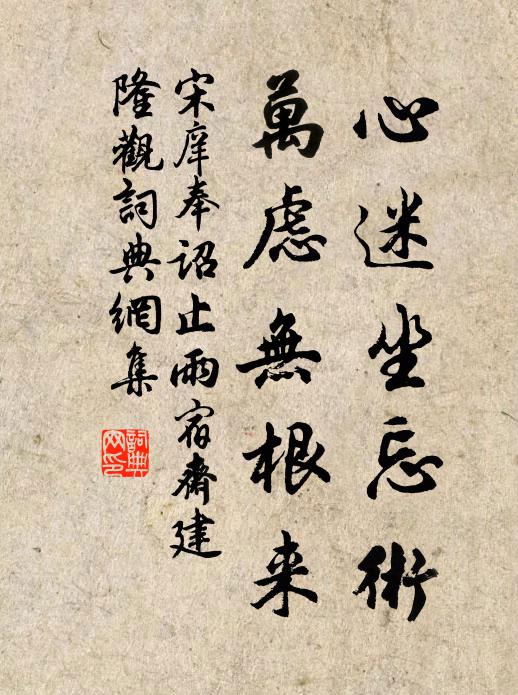 心迷坐忘術
萬慮無根来
宋庠奉詔止雨宿齋建
隆觀詞典網集
詞典
网印